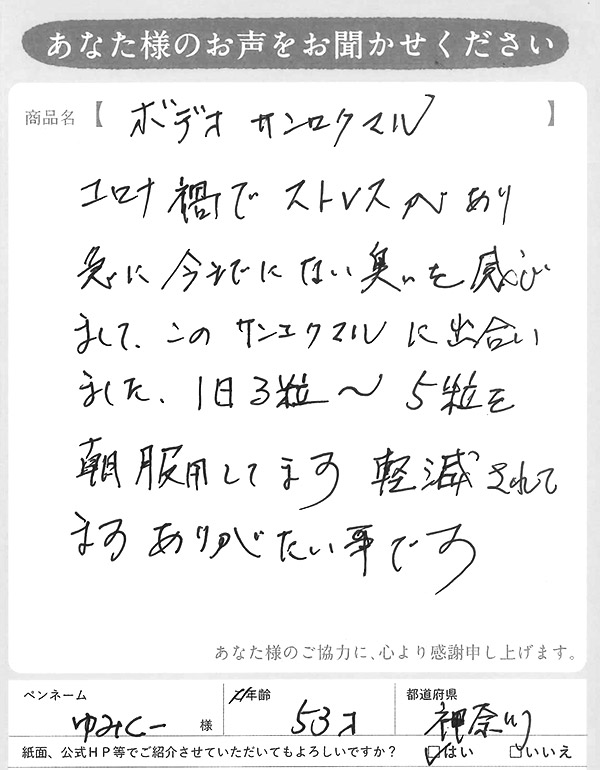 あなた様のお声をお聞かせください
商品名【 ボデオ サンロクマル 】
コロナ禍でストレスがあり
急に今までにない臭いを感じ
まして、このサンエクマルに出合い
ました、1日3粒〜5粒を
朝服用してます 軽減されて
ます ありがたい事です
あなた様のご協力に、心より感謝申し上げます。
ペンネーム 年齢 都道府県
ゆみくー 様 53才 神奈川
紙面、公式HP等でご紹介させていただいてもよろしいですか? はい いいえ